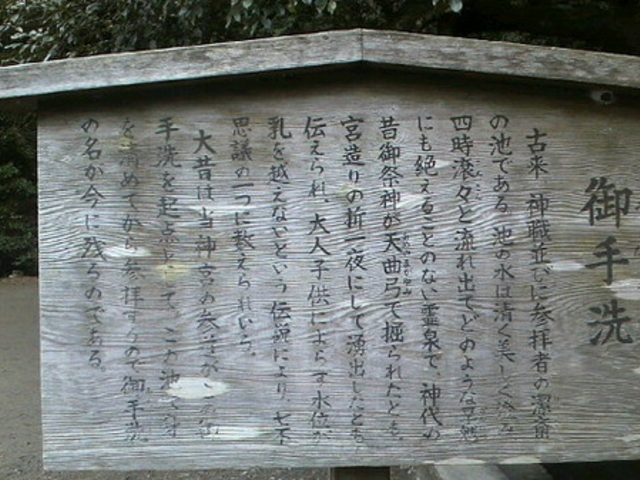 御手洗
古来、神職並びに参拝者の潔斎
の池である。池の水は清く美しく澄み
四時滾々と流れ出てどのような旱魃
にも絶えることのない霊泉で、神代の
昔御祭神が天曲弓で掘られたとも
宮造りの折一夜にして湧出したとも
伝えられ、大人子供によらず水位が
乳を越えないという伝説により、七不
思議の一つに数えられている。
大昔は当神宮の参道がこの御
手洗を起点として、この池で身
を清めてから参拝するので御手洗
の名が今に残るのである。